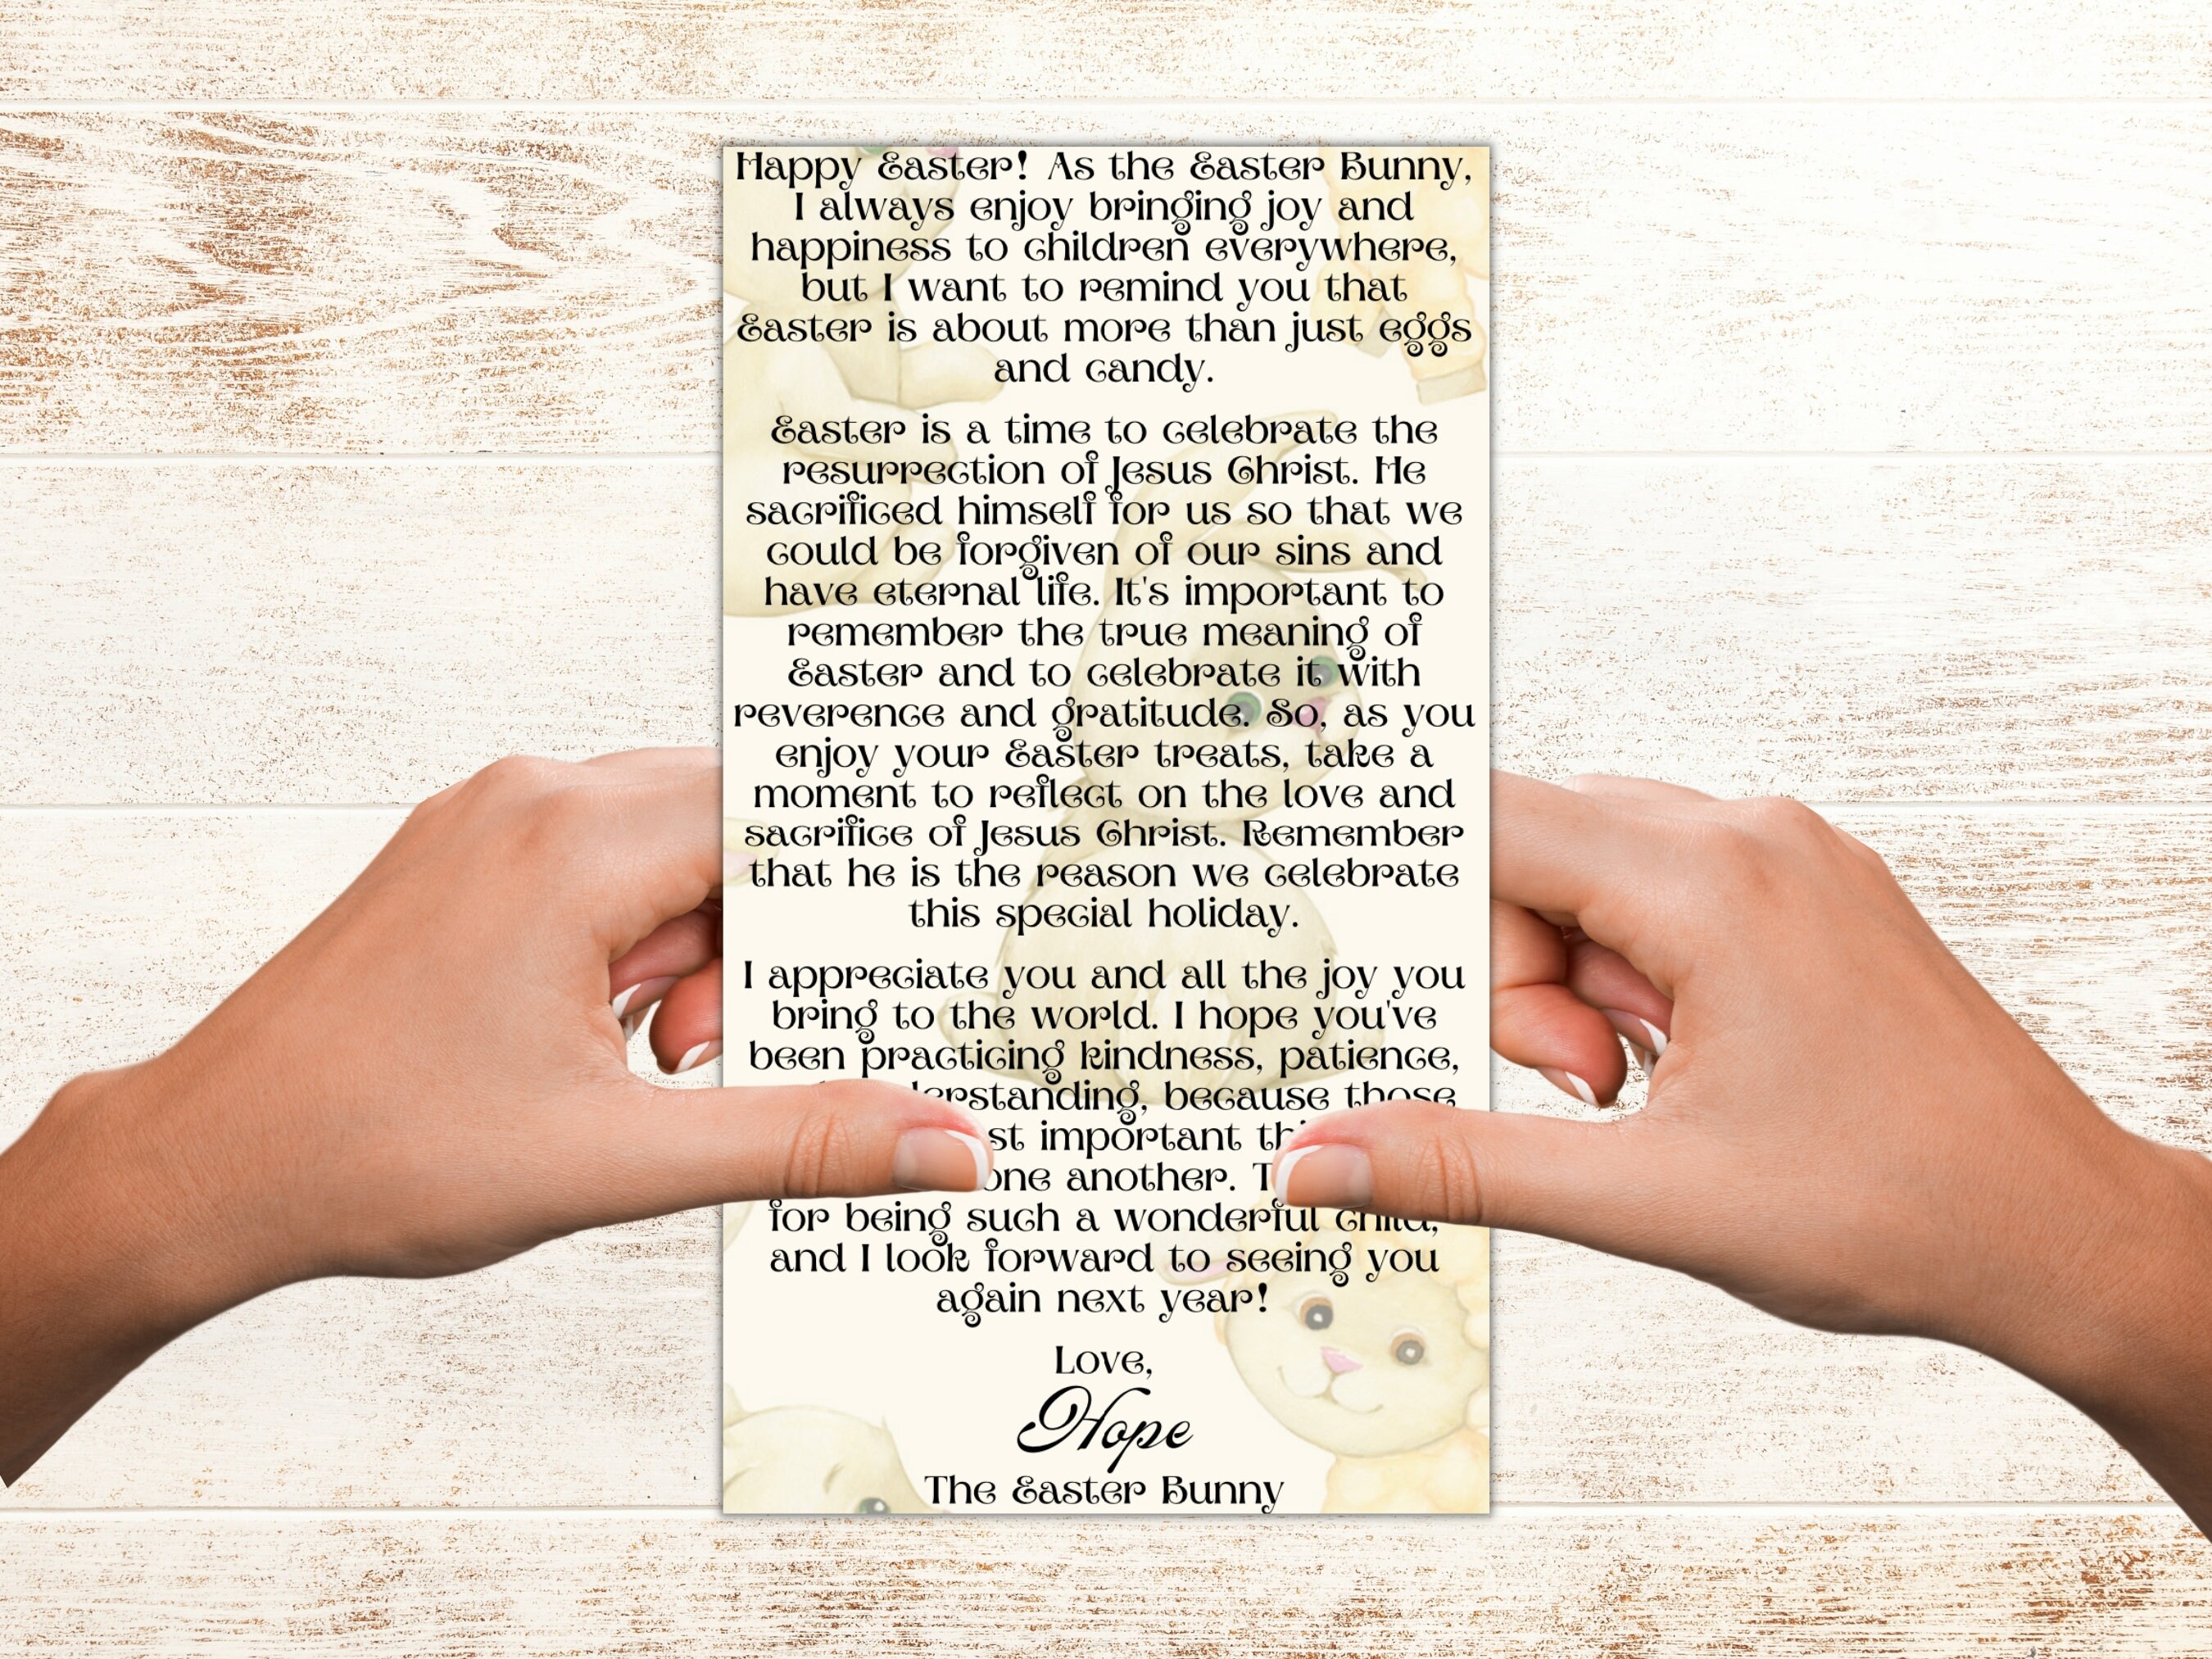 Happy Easter! As the Easter Bunny,
I always enjoy bringing joy and
happiness to children everywhere,
but I want to remind you that
Easter is about more than just eggs
and candy.
Easter is a time to celebrate the
resurrection of Jesus Christ. He
sacrificed himself for us so that we
could be forgiven of our sins and
have eternal life. It's important to
remember the true meaning of
Easter and to celebrate it with
reverence and gratitude. So, as you
enjoy your Easter treats, take a
moment to reflect on the love and
sacrifice of Jesus Christ. Remember
that he is the reason we celebrate
this special holiday.
I appreciate you and all the joy you
bring to the world. I hope you've
been practicing kindness, patience,
because those
important
one another.
for being such a wonderful child,
and I look forward to seeing you
again next year!
Love,
Hope
The Easter Bunny